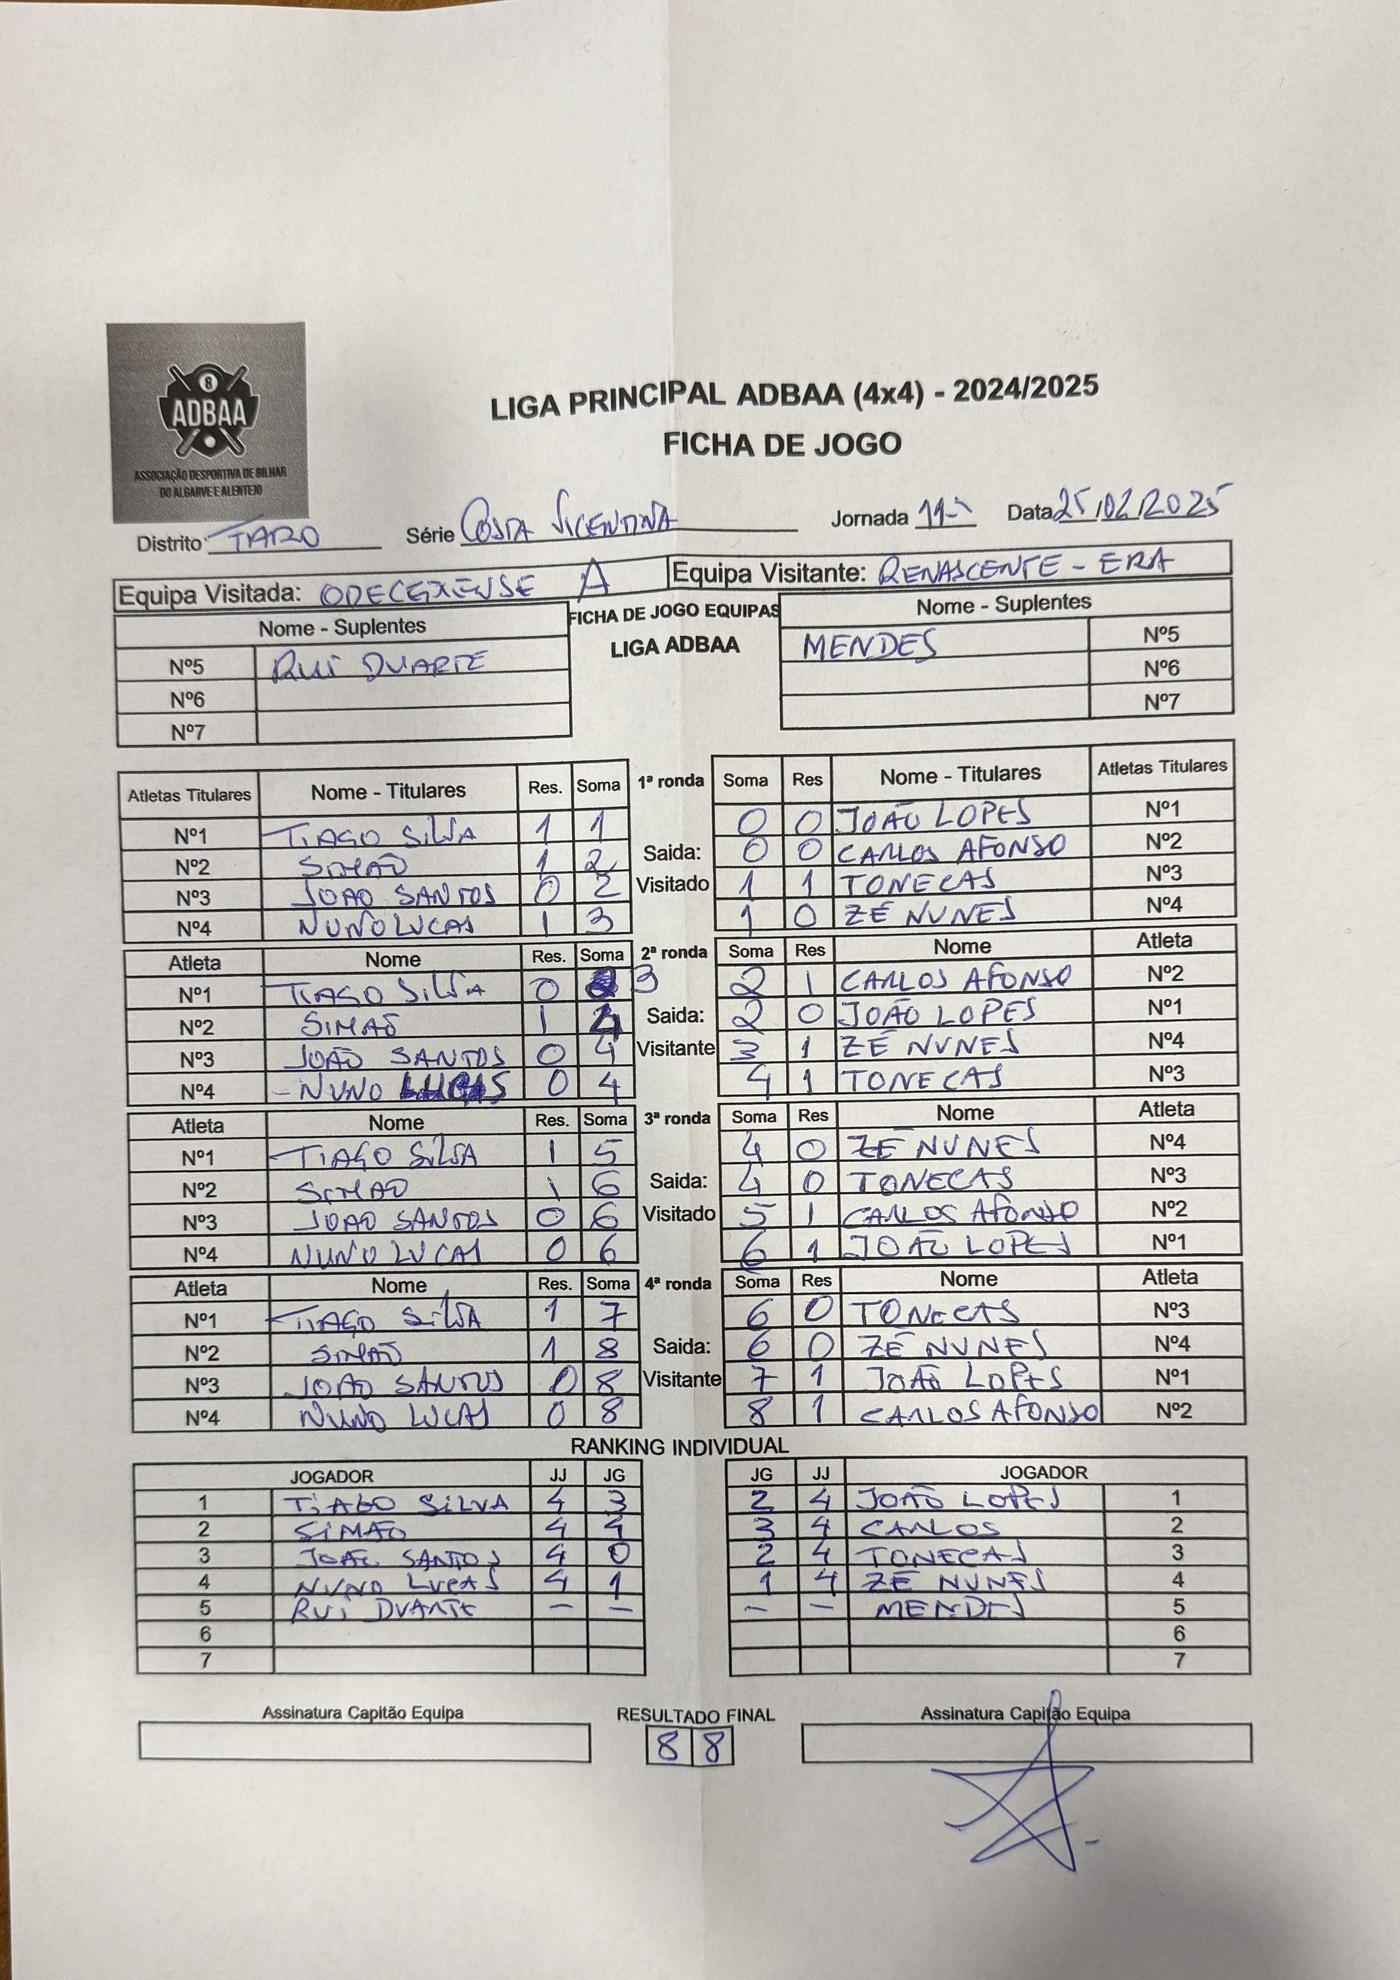 8
ADBAA
ASSOCIAÇÃO DESPORTIVA DE BILHAR
DO ALGARVE E ALENTEJO
LIGA PRINCIPAL ADBAA (4x4) - 2024/2025
FICHA DE JOGO
Distrito FARO Série COSTA VICENTINA Jornada 11ª Data 25/02/2025
Equipa Visitada: ODECEIXENSE A Equipa Visitante: RENASCENTE - ERA
Nome - Suplentes FICHA DE JOGO EQUIPAS Nome - Suplentes
LIGA ADBAA
Nº5 RUI DUARTE MENDES Nº5
Nº6 Nº6
Nº7 Nº7
Atletas Titulares Nome - Titulares Res. Soma 1ª ronda Soma Res Nome - Titulares Atletas Titulares
Nº1 TIAGO SILVA 1 1 0 0 JOÃO LOPES Nº1
Nº2 SIMÃO 1 2 Saida: 0 0 CARLOS AFONSO Nº2
Nº3 JOAO SANTOS 0 2 Visitado 1 1 TONECAS Nº3
Nº4 NUNO LUCAS 1 3 1 0 ZÉ NUNES Nº4
Atleta Nome Res. Soma 2ª ronda Soma Res Nome Atleta
Nº1 TIAGO SILVA 0 3 2 1 CARLOS AFONSO Nº2
Nº2 SIMÃO 1 4 Saida: 2 0 JOÃO LOPES Nº1
Nº3 JOÃO SANTOS 0 4 Visitante 3 1 ZÉ NUNES Nº4
Nº4 - NUNO LUCAS 0 4 4 1 TONECAS Nº3
Atleta Nome Res. Soma 3ª ronda Soma Res Nome Atleta
Nº1 TIAGO SILVA 1 5 4 0 ZÉ NUNES Nº4
Nº2 SIMAO 1 6 Saida: 4 0 TONECAS Nº3
Nº3 JOAO SANTOS 0 6 Visitado 5 1 CARLOS AFONSO Nº2
Nº4 NUNO LUCAS 0 6 6 1 JOÃO LOPES Nº1
Atleta Nome Res. Soma 4ª ronda Soma Res Nome Atleta
Nº1 TIAGO SILVA 1 7 6 0 TONECAS Nº3
Nº2 SIMÃO 1 8 Saida: 6 0 ZÉ NUNES Nº4
Nº3 JOAO SANTOS 0 8 Visitante 7 1 JOÃO LOPES Nº1
Nº4 NUNO LUCAS 0 8 8 1 CARLOS AFONSO Nº2
RANKING INDIVIDUAL
JOGADOR JJ JG JG JJ JOGADOR
1 TIAGO SILVA 4 3 2 4 JOÃO LOPES 1
2 SIMÃO 4 4 3 4 CARLOS 2
3 JOÃO SANTOS 4 0 2 4 TONECAS 3
4 NUNO LUCAS 4 1 1 4 ZÉ NUNES 4
5 RUI DUARTE - - - - MENDES 5
6 6
7 7
Assinatura Capitão Equipa RESULTADO FINAL Assinatura Capitão Equipa
8 8